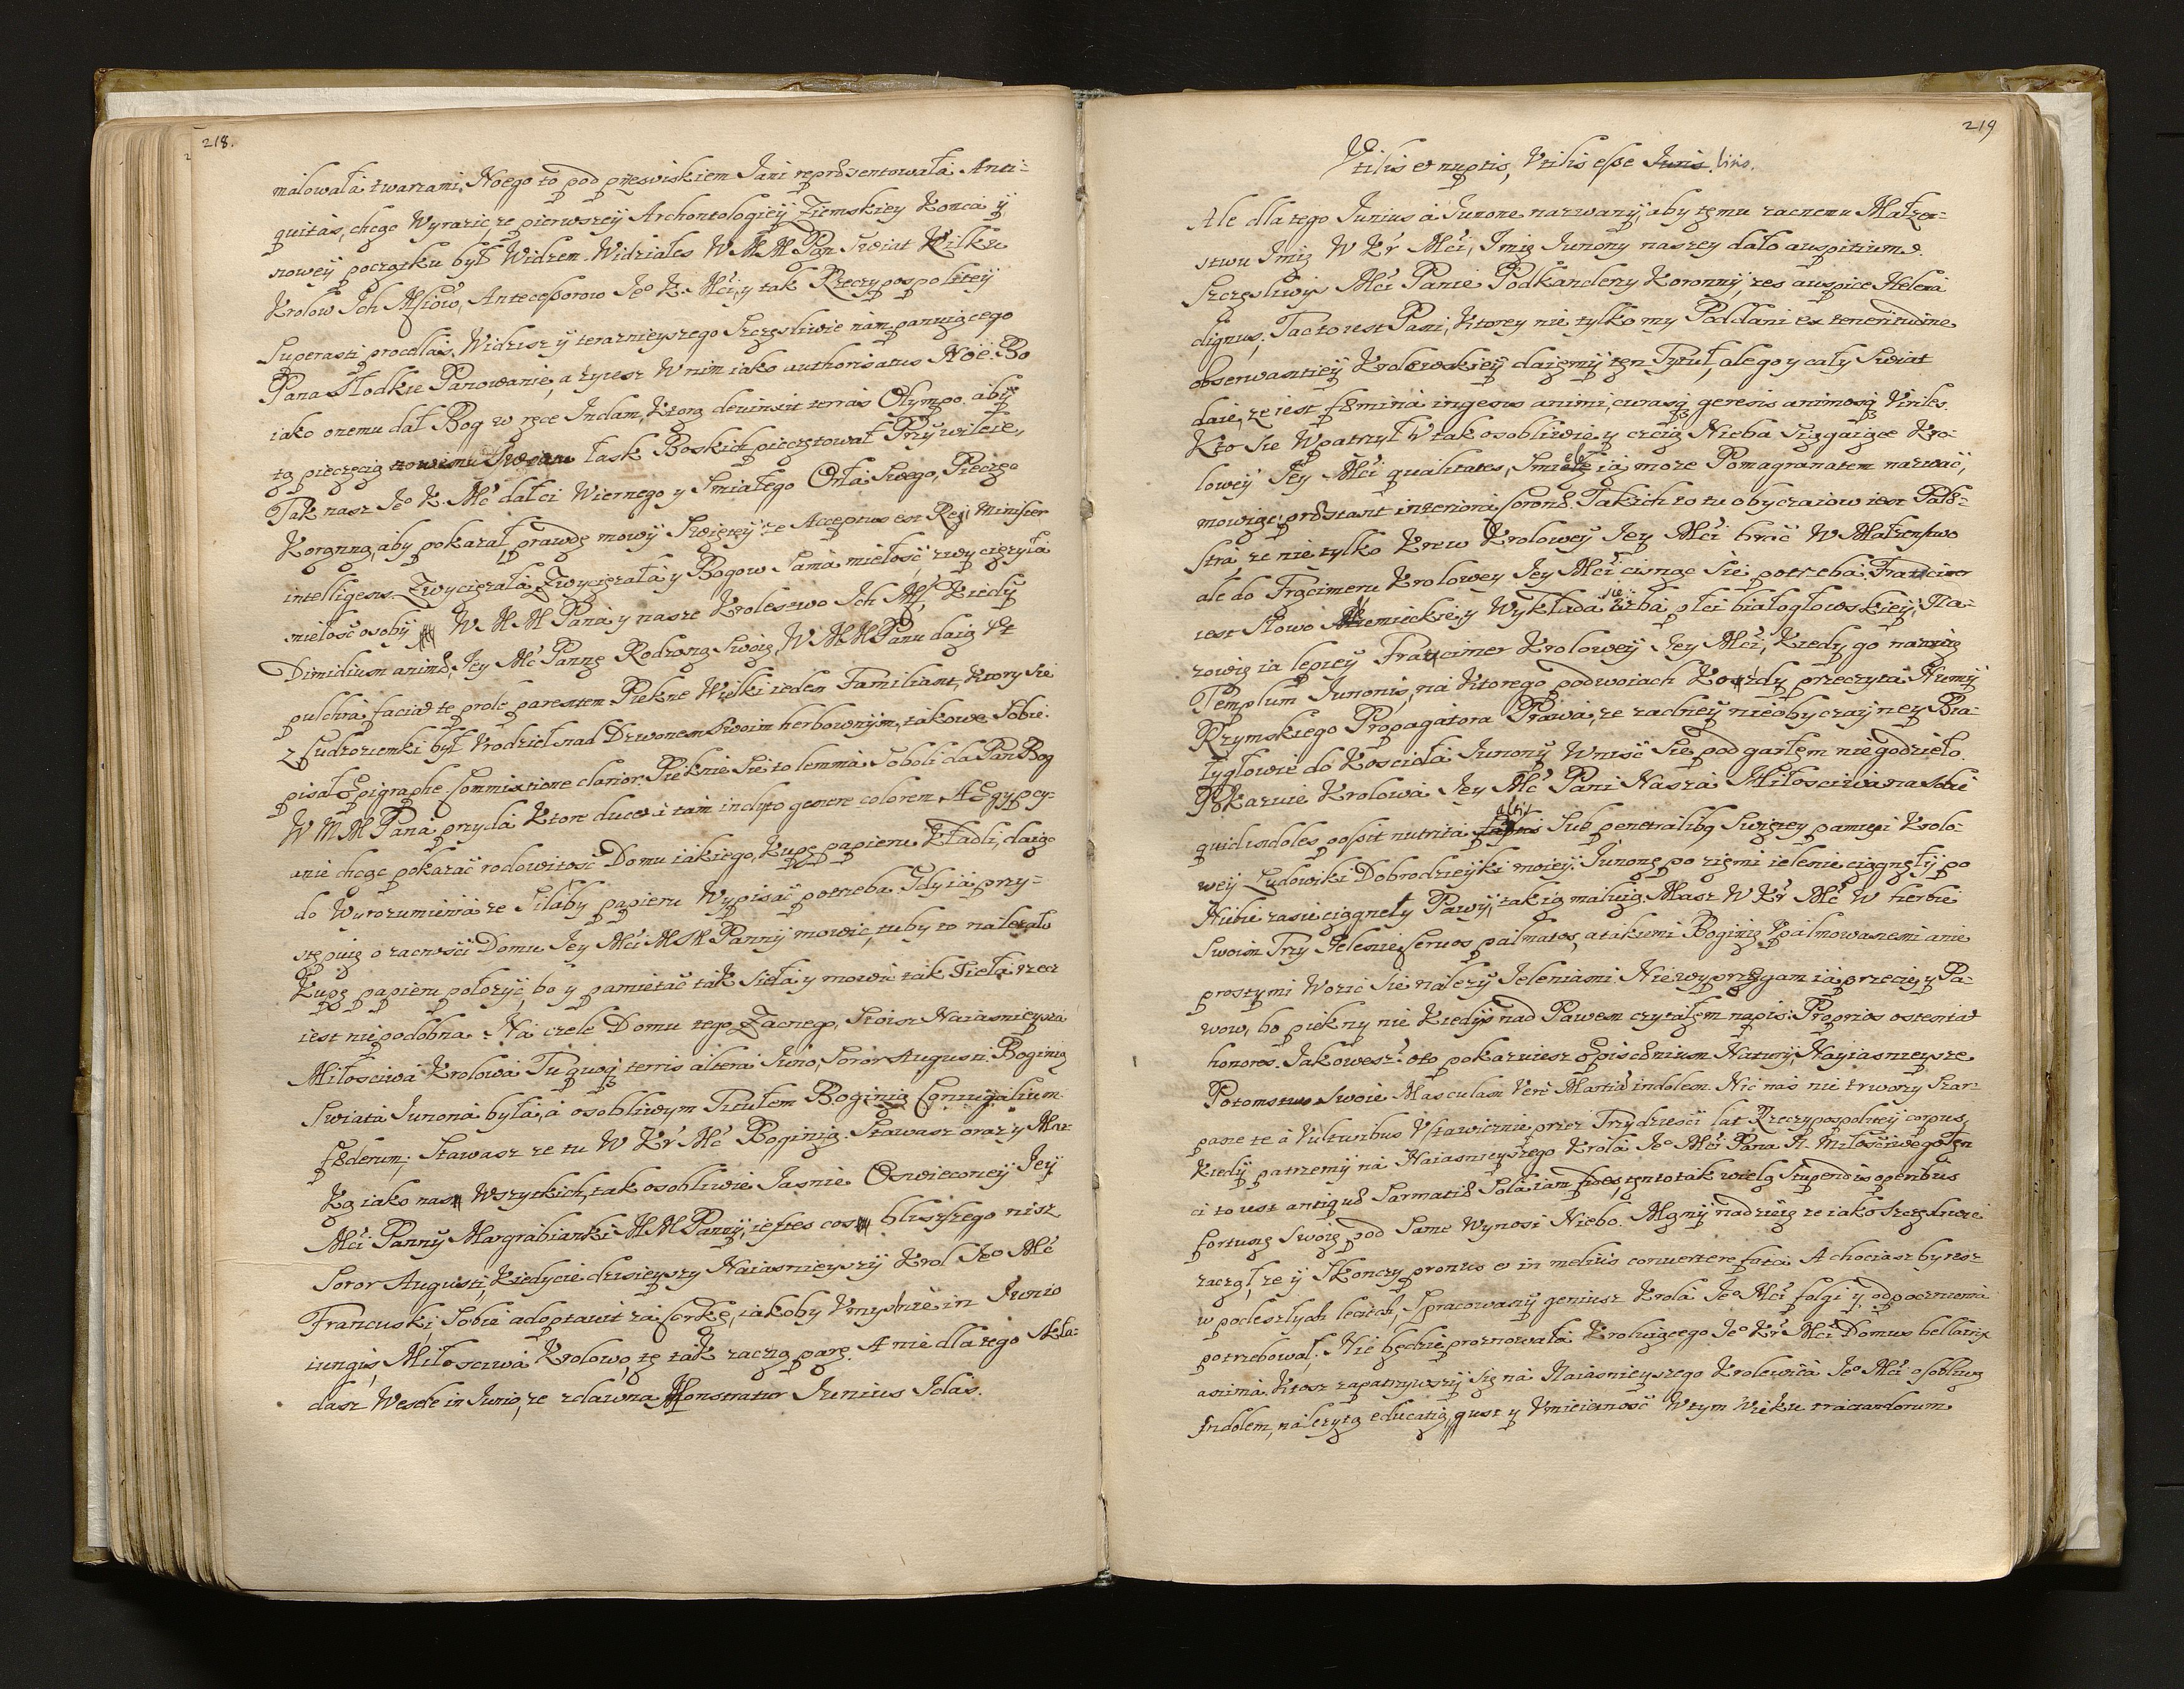 218.
malowała twarzami, Noego to pod przeswiskiem Jani repræsentowała Anti-
quitas, chcąc Wyrazic, ze pierwszey Archontologiey Ziemskiey Konca y
nowey początku był Widzem. Widziałes W M M Pan Swiat Kilku
Krolow Ich Msciow, Antecessorow Jeo K. Mci, y tak Rzeczypospolitey
Superasti procellas, Widzisz y teraznieyszego Szczęsliwie nam panuiącego
Pana Słodkie Panowanie, a zyiesz W nim iako authorisatus Noë. Bo
iako onemu dał Bog w ręce Indam, Ktorą deuinxit terras Olympo, aby
tą pieczęcią łask Boskich pieczętował Przywileie,
Tak nasz Jeo K. Mć dał ci Wiernego y Smiałego Orła Swego, Pieczęc
Koronną, aby pokazał prawdę mowy Swiętey: ze Acceptus est Regi Minister
intelligens. Zwyciężała Zwyciężała y Bogow Sama miełość, zwyciężyła
miełość osoby W. M M Pana y nasze Krolestwo Ich Mć, Kiedy
Dimidium animæ, Jey Mć Pannę Rodzoną Swoię, W M M Panu daią Vt
pulchra faciat te prole parentem. Piekne Wielki ieden Familiant, Ktory Sie
z Cudzoziemki był Vrodzieł nad Dzwonem Swoim herbownym, takowe Sobie
pisał Epigraphe Commixtione clarior. Pieknie Sie to lemma Soboli da Pan Bog
W M M Pana przyda Ktore ducet i tam inclyto genere colorem. AEgypcy-
anie chcąc pokazać rodowitosć Domu iakiego, Kupę papieru Kładli, daiąc
do Wyrozumienia ze Siłaby papieru Wypisać potrzeba. Gdy ia przy-
stępuię o zacnosci Domu Jey Mci M M Panny mowic, tuby to nalezało
Kupę papieru połozyć, bo y pamietać tak Siełá y mowic tak Siełá rzecz
iest niepodobna. Na czele Domu tego Zacnego, Stoisz Naiasnieysza
Miłosciwa Krolowa Tu quoq terris altera Juno, Soror Augusti. Boginią
Swiata Junona była, a osobliwym Titułem Boginią Coniugalium
fæderum; Stawasz ze tu W Kr Mć Boginią. Stawasz oraz y Mat-
Ką iako nas Wszytkich, tak osobliwie Jasnie Oswieconey Jey
Mci Panny Margrabianki M M Panny, iestes cos bliszszego nisz
Soror Augusti, Kiedycie dzisieyszy Naiasnieyszy Krol Jeo Mć
Francuski, Sobie adoptawit za Corkę, iakoby Vmyslnie in Junio
iungis, Miłosciwa Krolowo, tę tak zacną parę. A nie dla tego Skła-
dasz Wesele in Junio, ze zdawna Monstratur Junius Idas.
219
Vtilis et nuptis, Vtilis esse Viris.
Ale dla tego Junius a Junone nazwany, aby tęmu zacnemu Małzen-
stwu Imię W Kr Mci, Imię Junony naszey dało auspitium.
Szczęsliwys Mci Panie Podkanclerzy Koronny, zes auspice Helena
dignus; Tacto iest Pani, Ktorey nie tylko my Poddani ex teneritudine
obserwantiey Krolewskiey daięmy tęn Tytuł, ale go y cały Swiat
daie, ze iest fæmina ingens animi, curasq gerens animosq Viriles.
Kto Sie Wpatrzył W tak osobliwie, y czcią Nieba Siągaiące Kro-
lowey Jey Mci qualitates, Smiele ią moze Pomagranatem nazwać,
mowiąc; præstant interiora Coronæ. Takich to tu obyczaiow iest Palæ-
stra, ze nie tylko Krew Krolowey Jey Mci brać W Małzenstwo
ale do Fraucimeru Krolowey Jey Mci cisnąc Sie potrzeba. Fraucimer
iest Słowo Niemieckie, y Wykłada sie izba płci białogłowskiey, Na-
zowię ia lepiey Fraucimer Krolowey Jey Mci, Kiedy go nazwię
Templum Junonis, na Ktorego podwoiach Kozdy przeczyta Numy
Rzymskiego Propagatora Prawa, ze zadney nieobyczayney Bia-
łygłowie do Koscioła Junony Wnisć Sie pod gardłęm niegodzieło.
Pokazuie Krolowa Jey Mć Pani Nasza Miłosciwa na Sobie
quid indoles possit nutrita Sub penetralibq Swiętey pamięci Krolo-
wey Ludowiki Dobrodzieyki moiey. Junonę po ziemi ielenie ciągnęły po
Niebie zasie ciągnęły Pawy, tak ią maluią. Masz W Kr Mć W herbie
Swoim Trzy Ielenie Ceruos palmatos, a takiemi Boginią Vpalmowanemi anie
prostymi Wozic Sie nalezy Jeleniami. Nie wyprzęgam ia przecię y Pa-
wow, bo piękny nie Kiedys nad Pawem czytałęm napis: Proprios ostentat
honores. Jakowesz? oto pokazuiesz Episcænium Natury, Nayiasnieysze
Potomstwo Swoie Masculam Verè Martis indolem. Nic nas nie trwozy Szar-
pane te à Vulturibus Vstawicznie przez Trzydziesci lat Rzeczypospolitey corpus,
Kiedy patrzemy na Naiasnieyszego Krola Jeo Mci Pana N. Miłościwego tęn
ci to iest antiquæ Sarmatiæ Sola iam fides, tęn to tak wielą Stupendis operibus
fortunę Swoię pod Same Wynosi Niebo. Mamy nadzieię ze iako Szczęsliwie
zaczął, ze y Skonczy pronus et in melius conuertere fata. A chociasz by iesz
w podeszłych leciech, Spracowany geniusz Krola Jeo Mci folgi y odpocznienia
potrzebował. Nie będzie proznowała Kroluiącego Jeo Kr Mci Domus bellatrix
anima. Ktosz zapatrzywszy Się na Naiasnieyszego Krolewica Jeo Mci osobliwą
Indolem, nalezytą educatią, gust y Vmieiętność W tym Wieku tractandorum